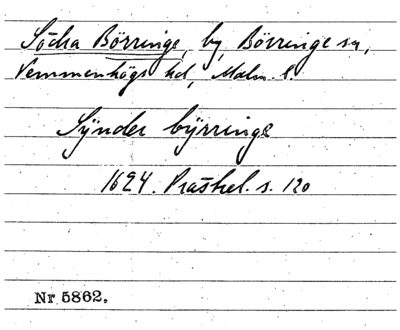 Södra Börringe, by, Börringe sn,
Vemmenhögs hd, Malm. l.
Sÿnder bÿrringe
1624. Prästrel. s. 120
Nr 5862.